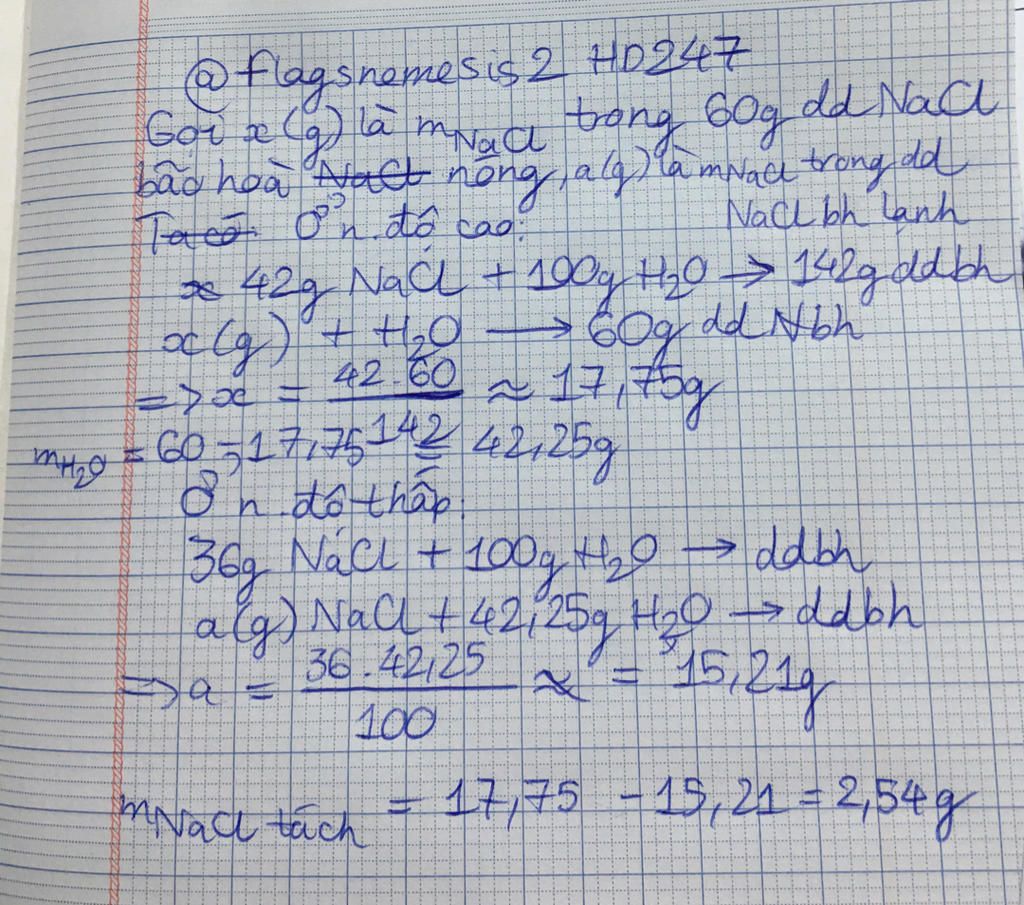 @flagsnemesis2 HD247
Gọi x(g) là mNaCl trong 60g dd NaCl
bão hoà NaCl nóng, a(g) là mNaCl trong dd
NaCl bh lạnh
Ta có Ở n.độ cao:
x 42g NaCl + 100g H2O → 142g ddbh
x(g) + H2O → 60g dd Nbh
=> x = 42.60 / 142 ≈ 17,75g
mH2O = 60 - 17,75 = 42,25g
Ở n.độ thấp:
36g NaCl + 100g H2O → ddbh
a(g) NaCl + 42,25g H2O → ddbh
=> a = 36.42,25 / 100 ≈ = 15,21g
mNaCl tách = 17,75 - 15,21 = 2,54g